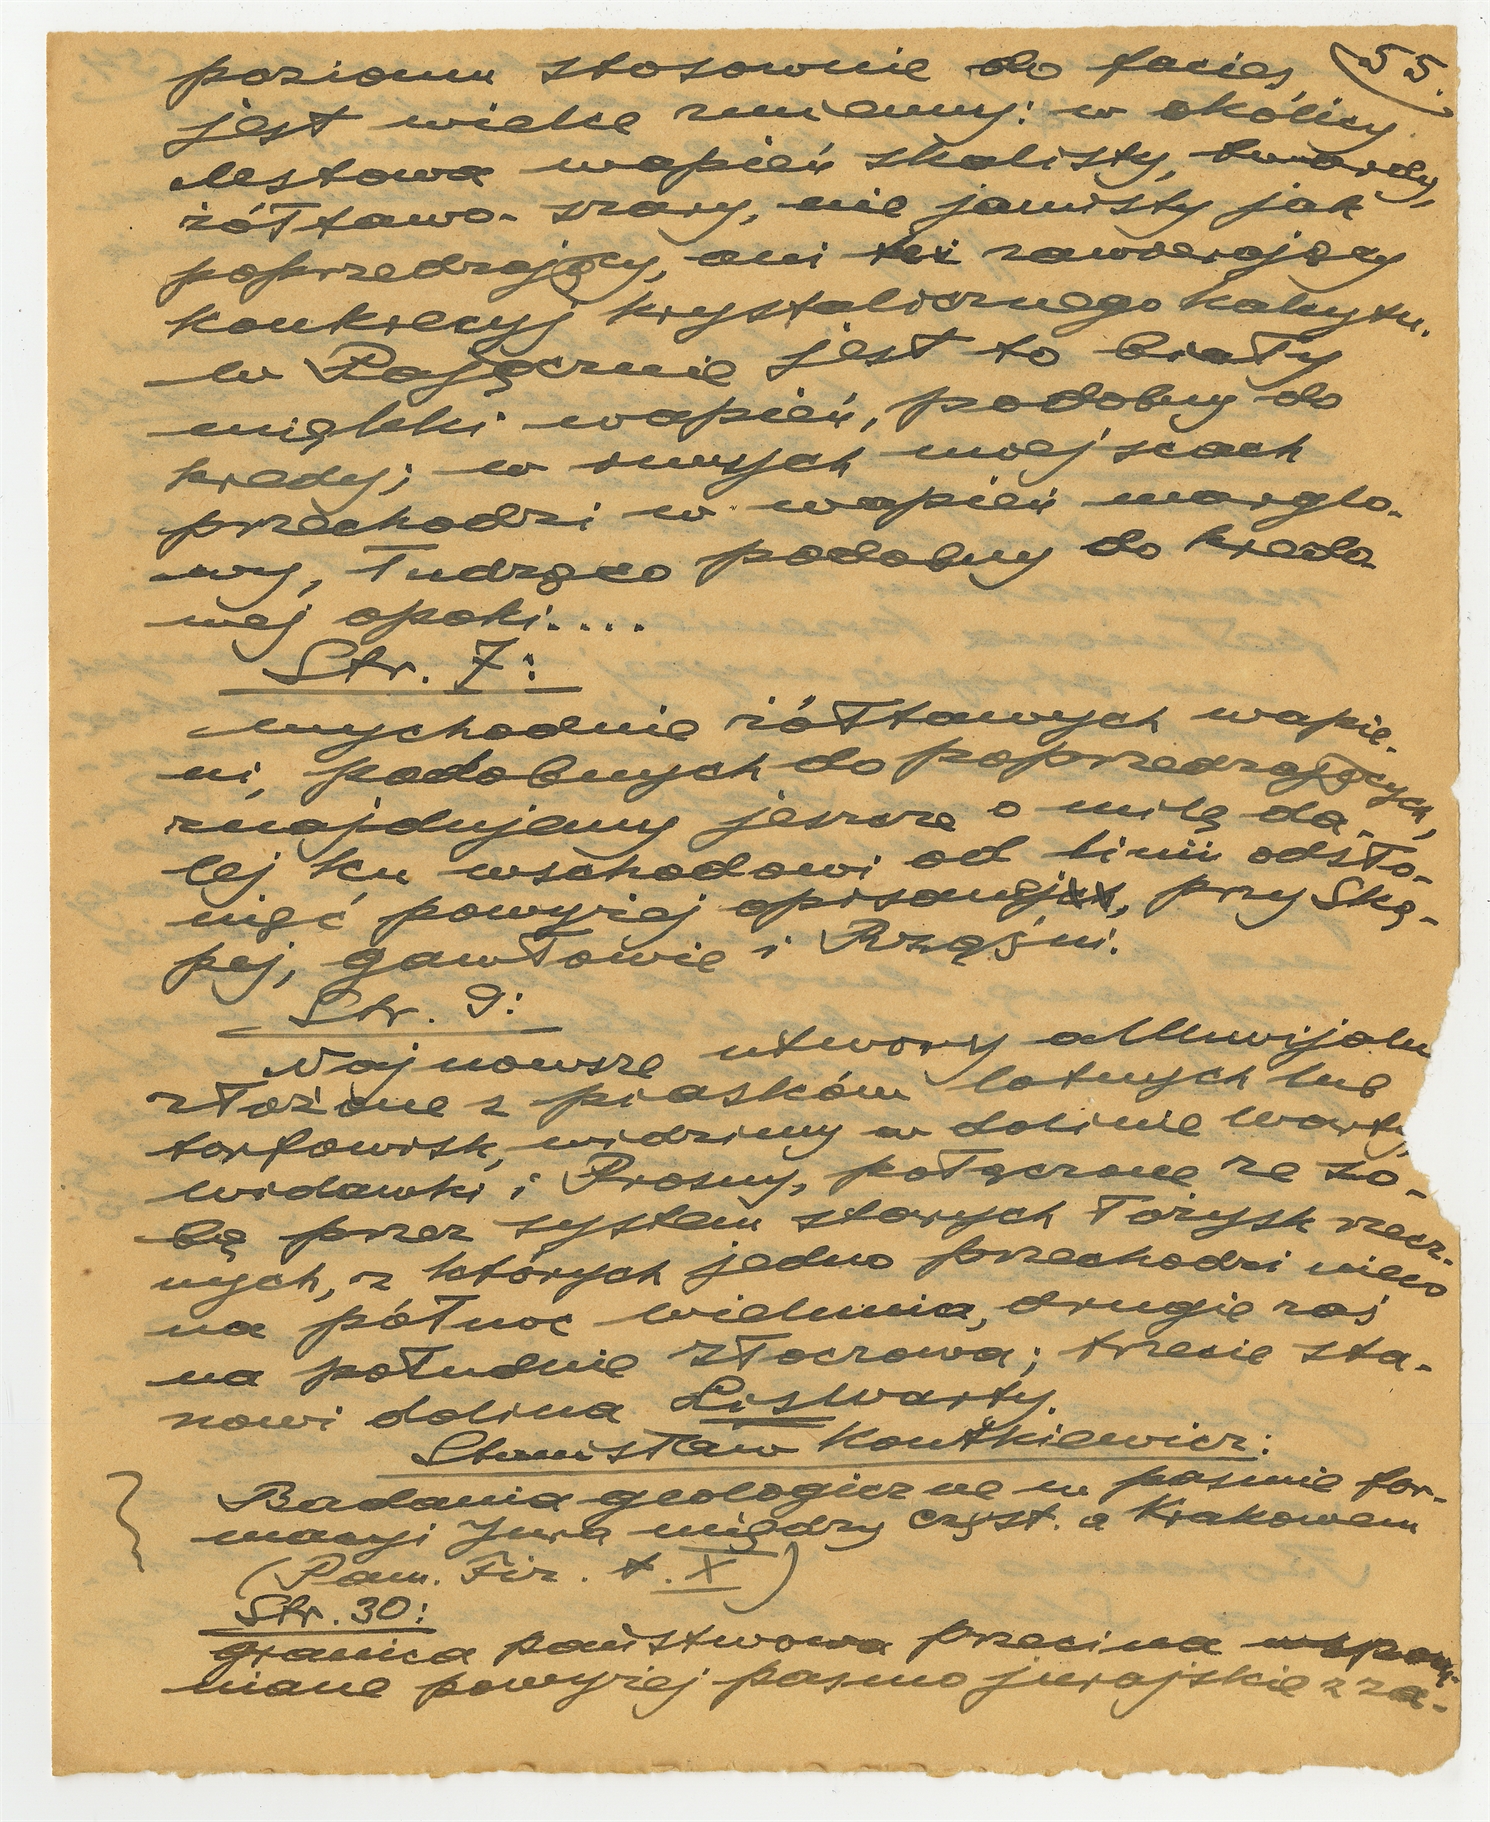 55.
poziomu stosownie do facies
jest wielce zmienny: w okolicy
Mstowa wapień skalisty, twardy,
żółtawo-szary, nie jamisty jak
poprzedzający, ani też zawierający
konkrecyj krystalicznego kalcytu.
W Pajęcznie jest to biały
miękki wapień, podobny do
kredy; w innych miejscach
przechodzi w wapień marglo-
wy, łudząco podobny do kredo-
wej opoki....
Str. 7:
wychodnie żółtawych wapie-
ni, podobnych do poprzedzających,
znajdujemy jeszcze o milę da-
lej ku wschodowi od linii odsło-
nięć powyżej opisanej, przy Ską-
pej, Gawłowie i Rząśni.
Str. 9:
Najnowsze utwory alluwijalne
złożone z piasków lotnych lub
torfowisk, widzimy w dolinie Warty,
Widawki i Prosny, połączone ze so-
bą przez system starych łożysk rzecz-
nych, z których jedno przechodzi nieco
na północ Wielunia, drugie zaś
na południe Złoczowa; trzecie sta-
nowi dolina Liswarty.
Stanisław Kontkiewicz:
Badania geologiczne w paśmie for-
macyi Jura między Częst. a Krakowem
(Pam. Fiz. t. X)
Str. 30:
granica państwowa przecina wspom-
niane powyżej pasmo jurajskie z za-